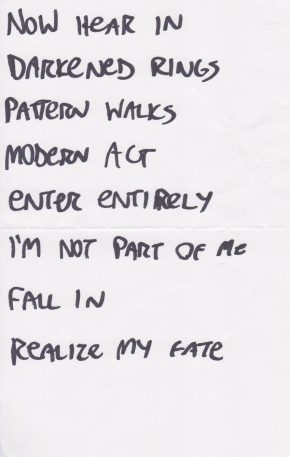 NOW HEAR IN
DARKENED RINGS
PATTERN WALKS
MODERN ACT
ENTER ENTIRELY
I'M NOT PART OF ME
FALL IN
REALIZE MY FATE